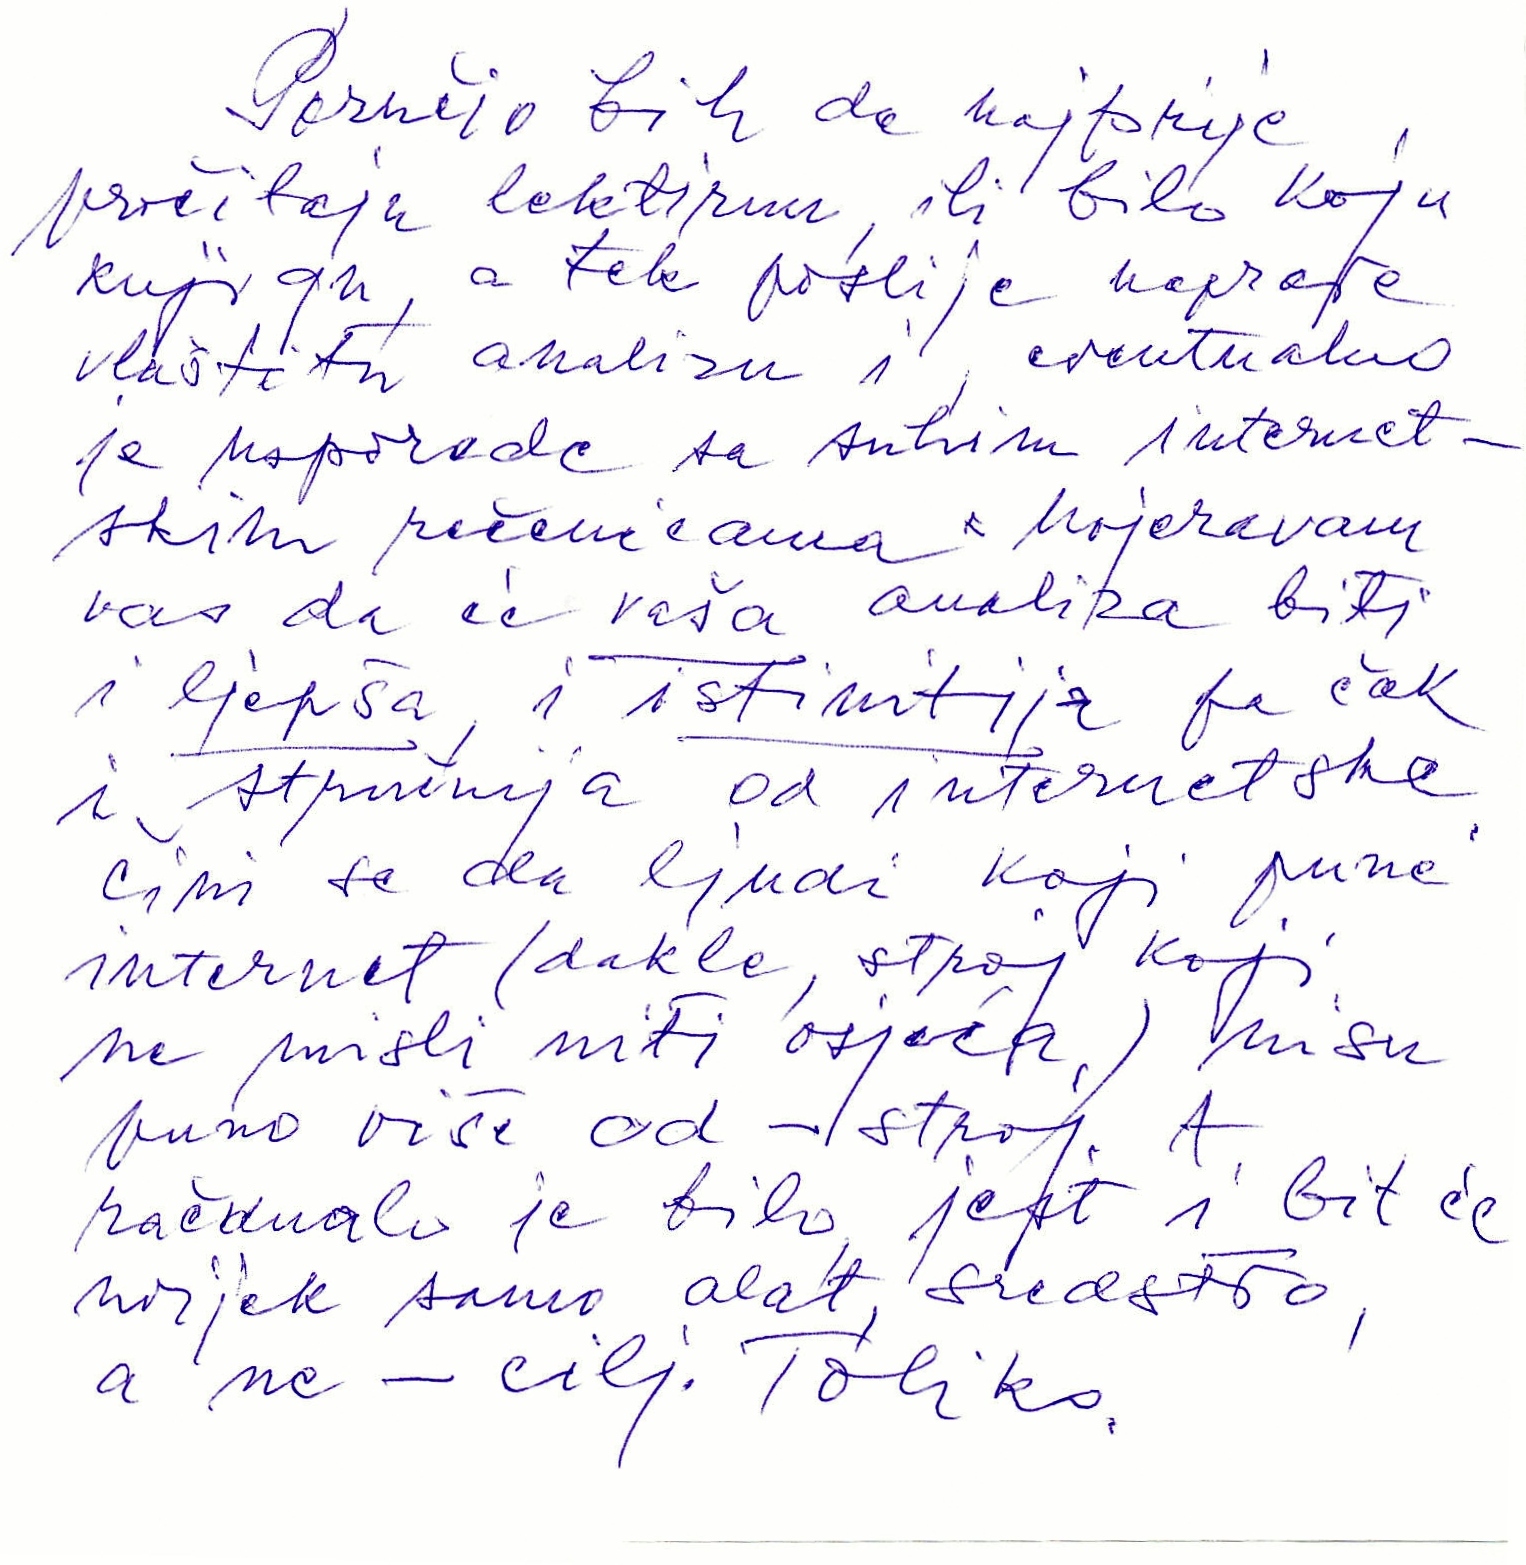 Poručio bih da najprije
pročitaju lektiru, ili bilo koju
knjigu, a tek poslije naprave
vlastitu analizu i, eventualno
je usporede sa suhim internet-
skim rečenicama. Uvjeravam
vas da će vaša analiza biti
i ljepša, i istinitija pa čak
i stručnija od internetske.
Čini se da ljudi koji pune
internet (dakle, stroj koji
ne misli niti osjeća) nisu
puno više od – stroj. A
računalo je bilo, jest i bit će
uvijek samo alat, sredstvo,
a ne – cilj. Toliko.